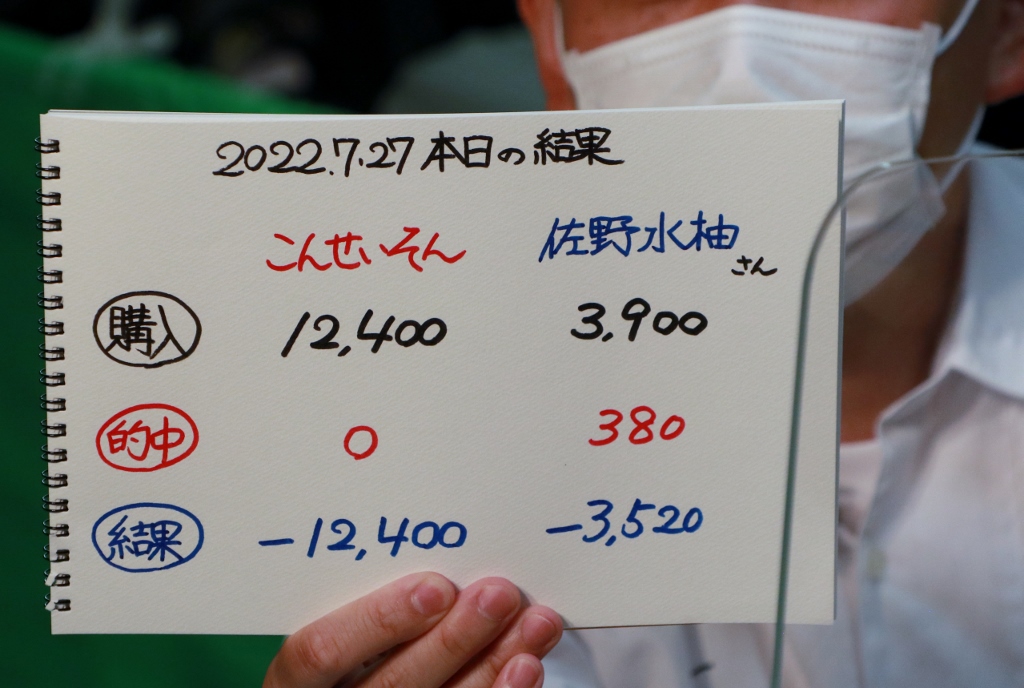 2022.7.27 本日の結果
こんせいそん 佐野水柚さん
購入 12,400 3,900
的中 0 380
結果 -12,400 -3,520